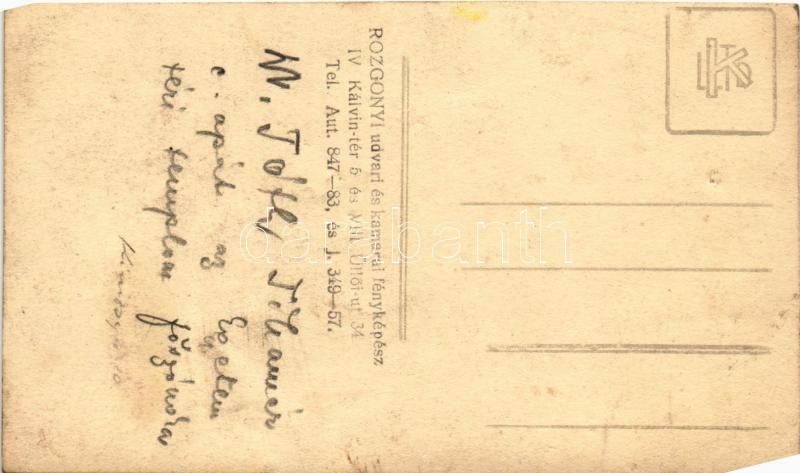 ROZGONYI udvari és kamarai fényképész
IV Kálvin-tér 5 és VIII. Üllői-ut 34
Tel. Aut. 847—83, és J. 349—57.
Tóth Tihamér
c. apát az Egyetem
téri templom főszónoka
darabanth